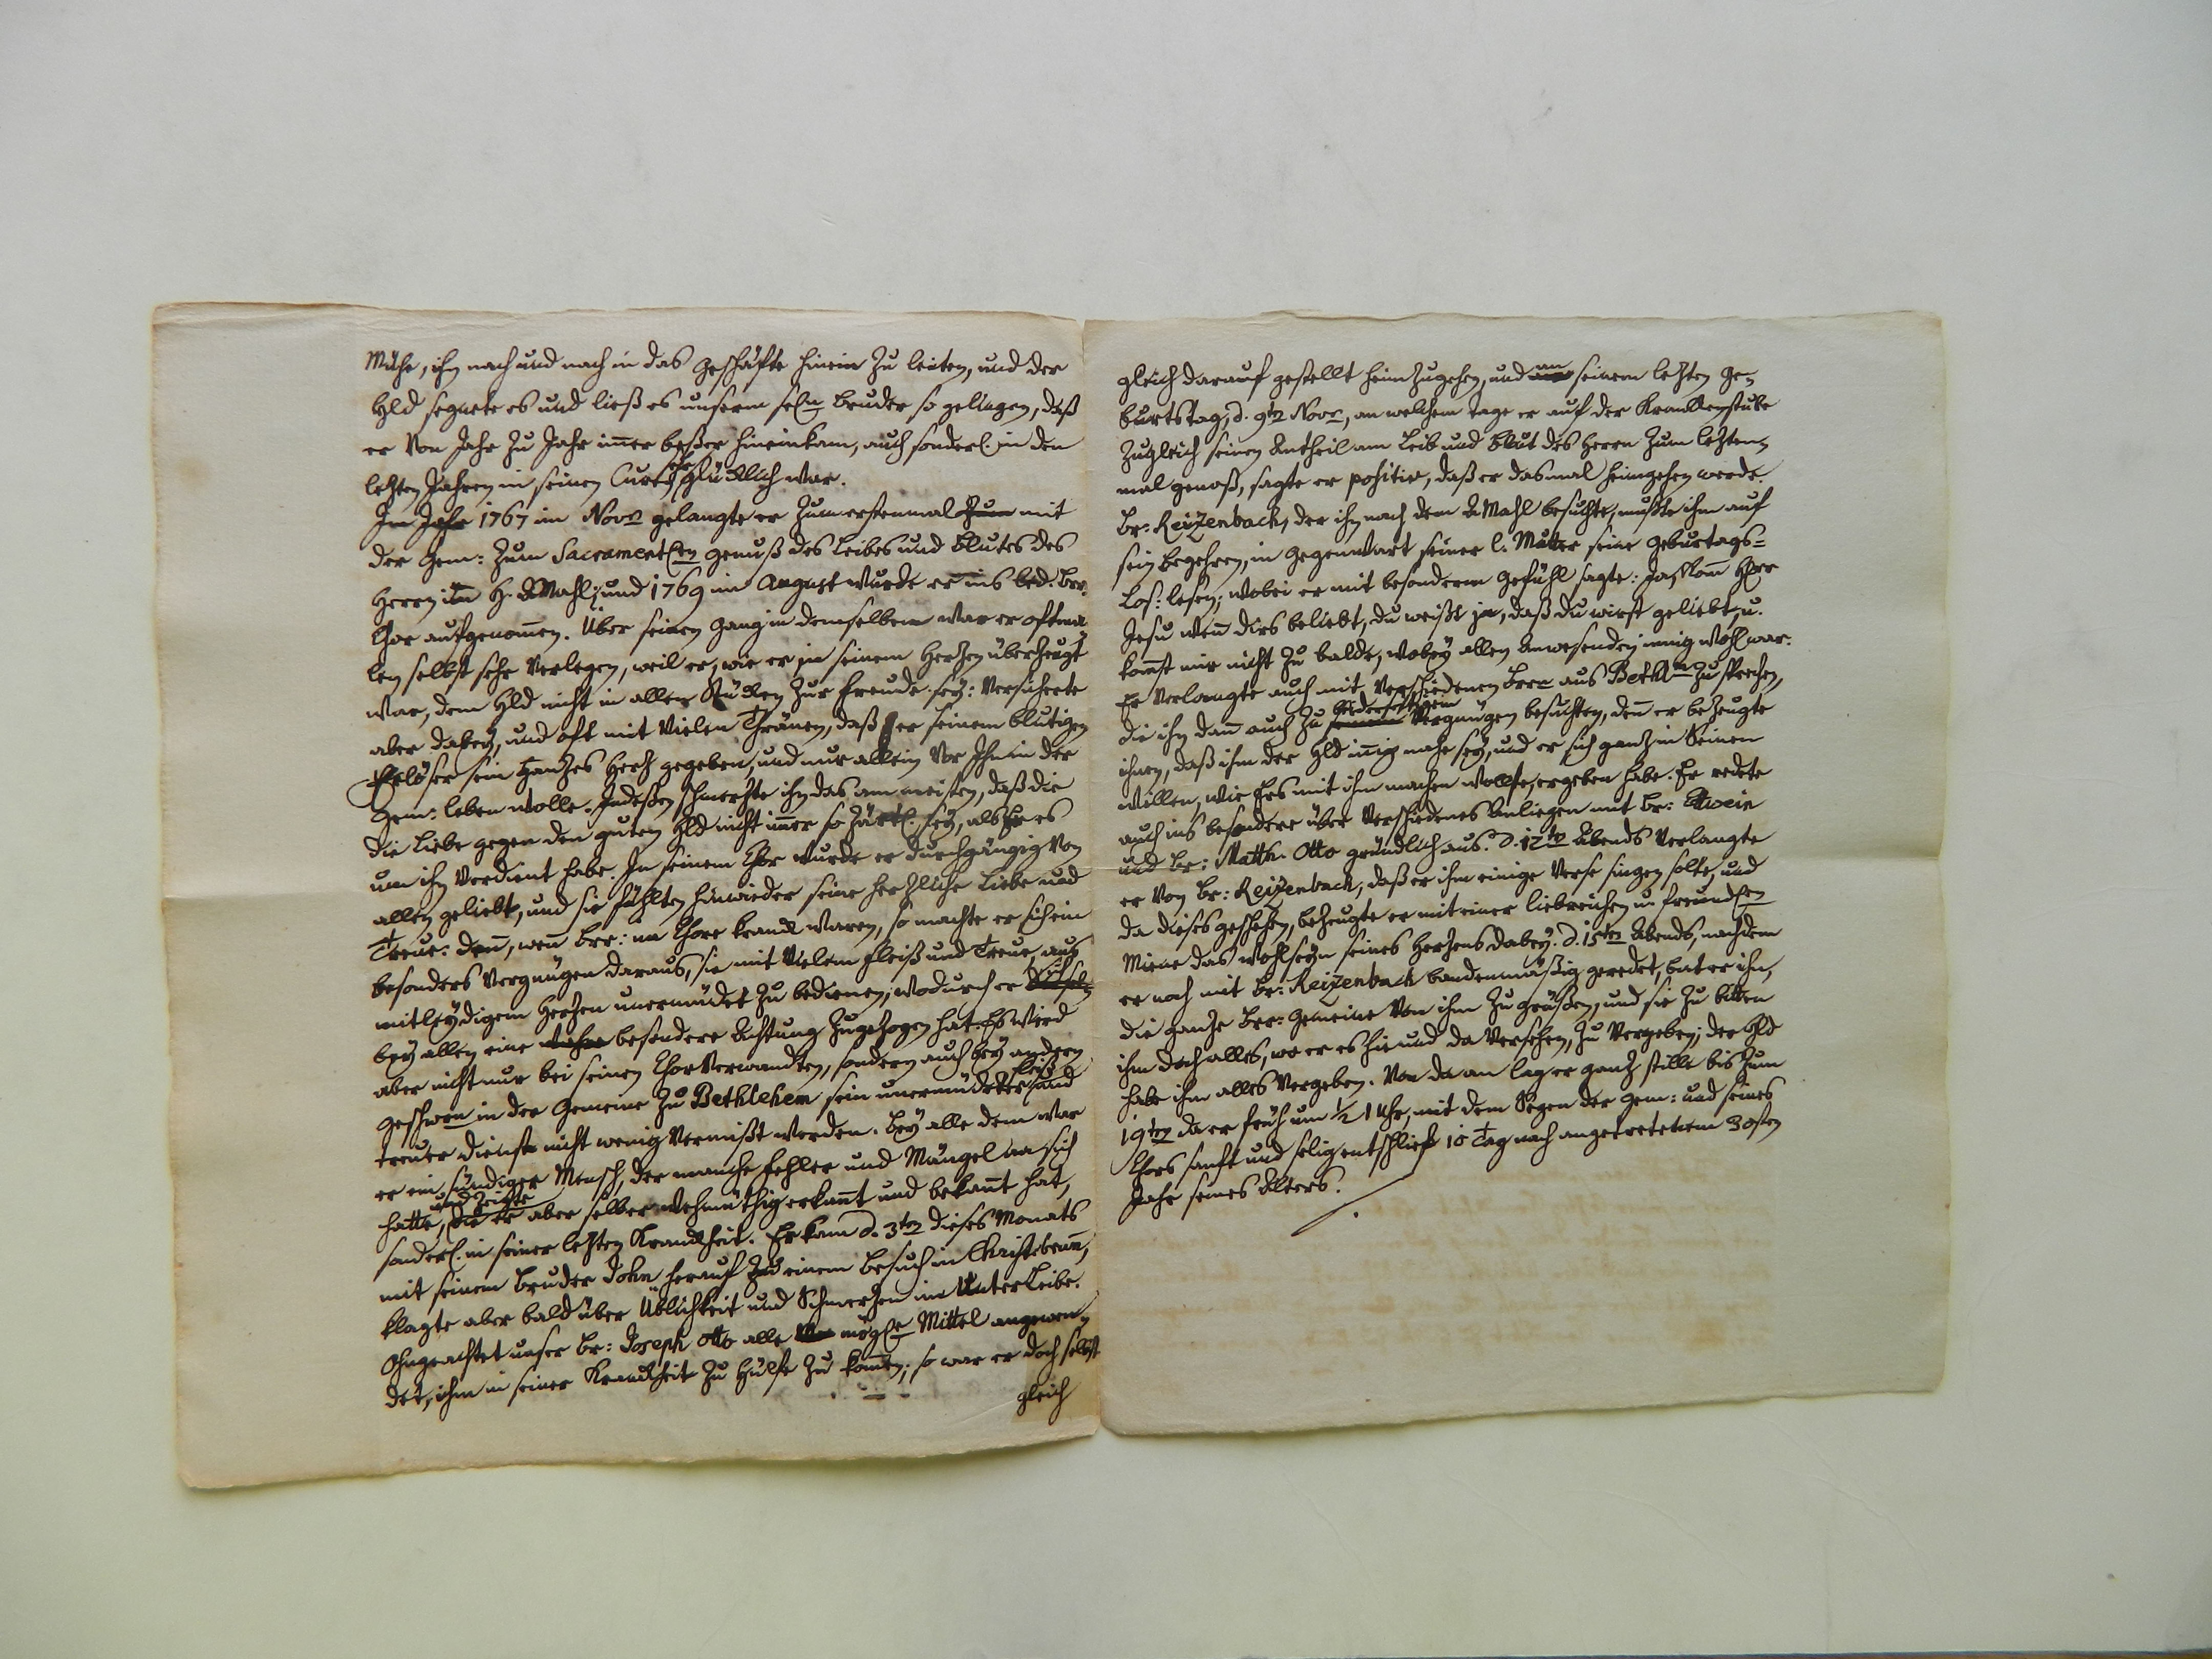 Mühe, ihn nach und nach in das Geschäfte hinein zu leiten, und der
Hld segnete es und ließ es unserm seln Bruder so gelingen, daß
er von Jahr zu Jahr imer beßer hineinkam, auch sonderl. in den
letzten Jahren in seinen Curen sehr glücklich war.
Im Jahr 1767 im Novr gelangte er zum erstenmal zum mit
der Gem: zum Sacramentlen Genuß des Leibes und Blutes des
Herrn im H. AMahl; und 1769 im August wurde er ins led. Brr.
Chor aufgenomen. Über seinen Gang in demselben war er oftma
len selbst sehr verlegen, weil er, wie er in seinem Herzen überzeugt
war, dem Hld nicht in allen Stücken zur Freude sey: versicherte
aber dabey, und oft mit vielen Thränen, daß er seinem blutigen
Erlöser sein ganzes Herz gegeben, und nur allein vor Ihn in der
Gem: leben wolle. Indeßen schmerzte ihn das am meisten, daß die
die Liebe gegen den guten Hld nicht imer so zärtl. sey, als Er es
um ihn verdient habe. In seinem Chor wurde er durchgängig von
allen geliebt, und sie fühlten hinwieder seine herzliche Liebe und
Treue: denn, wenn Brr: im Chore krank waren, so machte er sich ein
besonders Vergnügen daraus, sie mit vielem Fleiß und Treue, aus
mitleydigem Herzen unermüdet zu bedienen; wodurch er sich
bey allen eine besondere Achtung zugezogen hat. Es wird
aber nicht nur bei seinen Chorverwandten, sondern auch bey andern
Geschwrn in der Gemeine zu Bethlehem sein unermüdeter Fleiß und
treuer Dienst nicht wenig vermißt werden. Bey alle dem war
er ein sündiger Mensch, der manche Fehler und Mängel an sich
hatte, und zeigte die er aber selber wehmüthig erkant und bekant hat,
sonderl. in seiner letzten Krankheit. Er kam d. 3ten dieses Monats
mit seinem Bruder John herauf zu einem Besuch in Christsbrunn,
klagte aber bald über Üblichkeit und Schmerzen im Unterleibe.
Ohngeachtet unser Br: Joseph Otto alle mögle Mittel angewen-
det, ihm in seiner Krankheit zu Hülfe zu komen; so war er doch selbst
gleich
gleich darauf gestellt heimzugehen, und an seinem letzten Ge-
burtstag, d. 9ten Novr, an welchem Tage er auf der Krankenstube
zugleich seinen Antheil am Leib und Blut des Herrn zum letzten-
mal genoß, sagte er positiv, daß er dasmal heimgehen werde.
Br: Reizenback, der ihn nach dem AMahl besuchte, mußte ihm auf
sein Begehren, in Gegenwart seiner l. Mutter seine Geburtags-
Los: lesen; wobei er mit besonderm Gefühl sagte: Ja, kom HErr
Jesu wenn dirs beliebt, du weißt ja, daß du wirst geliebt, u.
komst mir nicht zu balde, wobey allen Anwesenden innig wohl war.
Er verlangte auch mit verschiedenen Brrn aus Bethlm zu sprechen,
die ihn dann auch zu beiderseitigem Vergnügen besuchten, denn er bezeugte
ihnen, daß ihm der Hld innig nahe sey, und er sich ganz in Seinen
Willen, wie Ers mit ihm machen wollte, ergeben habe. Er redete
auch ins besondere über verschiedenes Anliegen mit Br: Ettwein
und Br: Matth. Otto gründlich aus. d. 12ten Abends verlangte
er von Br: Reizenback, daß er ihm einige Verse singen solte, und
da dieses geschehen, bezeugte er mit einer liebreichen u. freundlen
Miene das Wohlseyn seines Herzens dabey. d. 15ten Abends, nachdem
er noch mit Br: Reizenback bandenmäßig geredet, bat er ihn,
die ganze Brr: Gemeine von ihm zu grüßen, und sie zu bitten
ihm doch alles, wo er es hie und da versehen, zu vergeben; der Hld
habe ihm alles vergeben. Von da an lag er ganz stille bis zum
19ten da er früh um ½ 1 Uhr, mit dem Segen der Gem: und seines
Chors sanft und selig entschlief 10 Tag nach angetretenem 30sten
Jahr seines Alters.